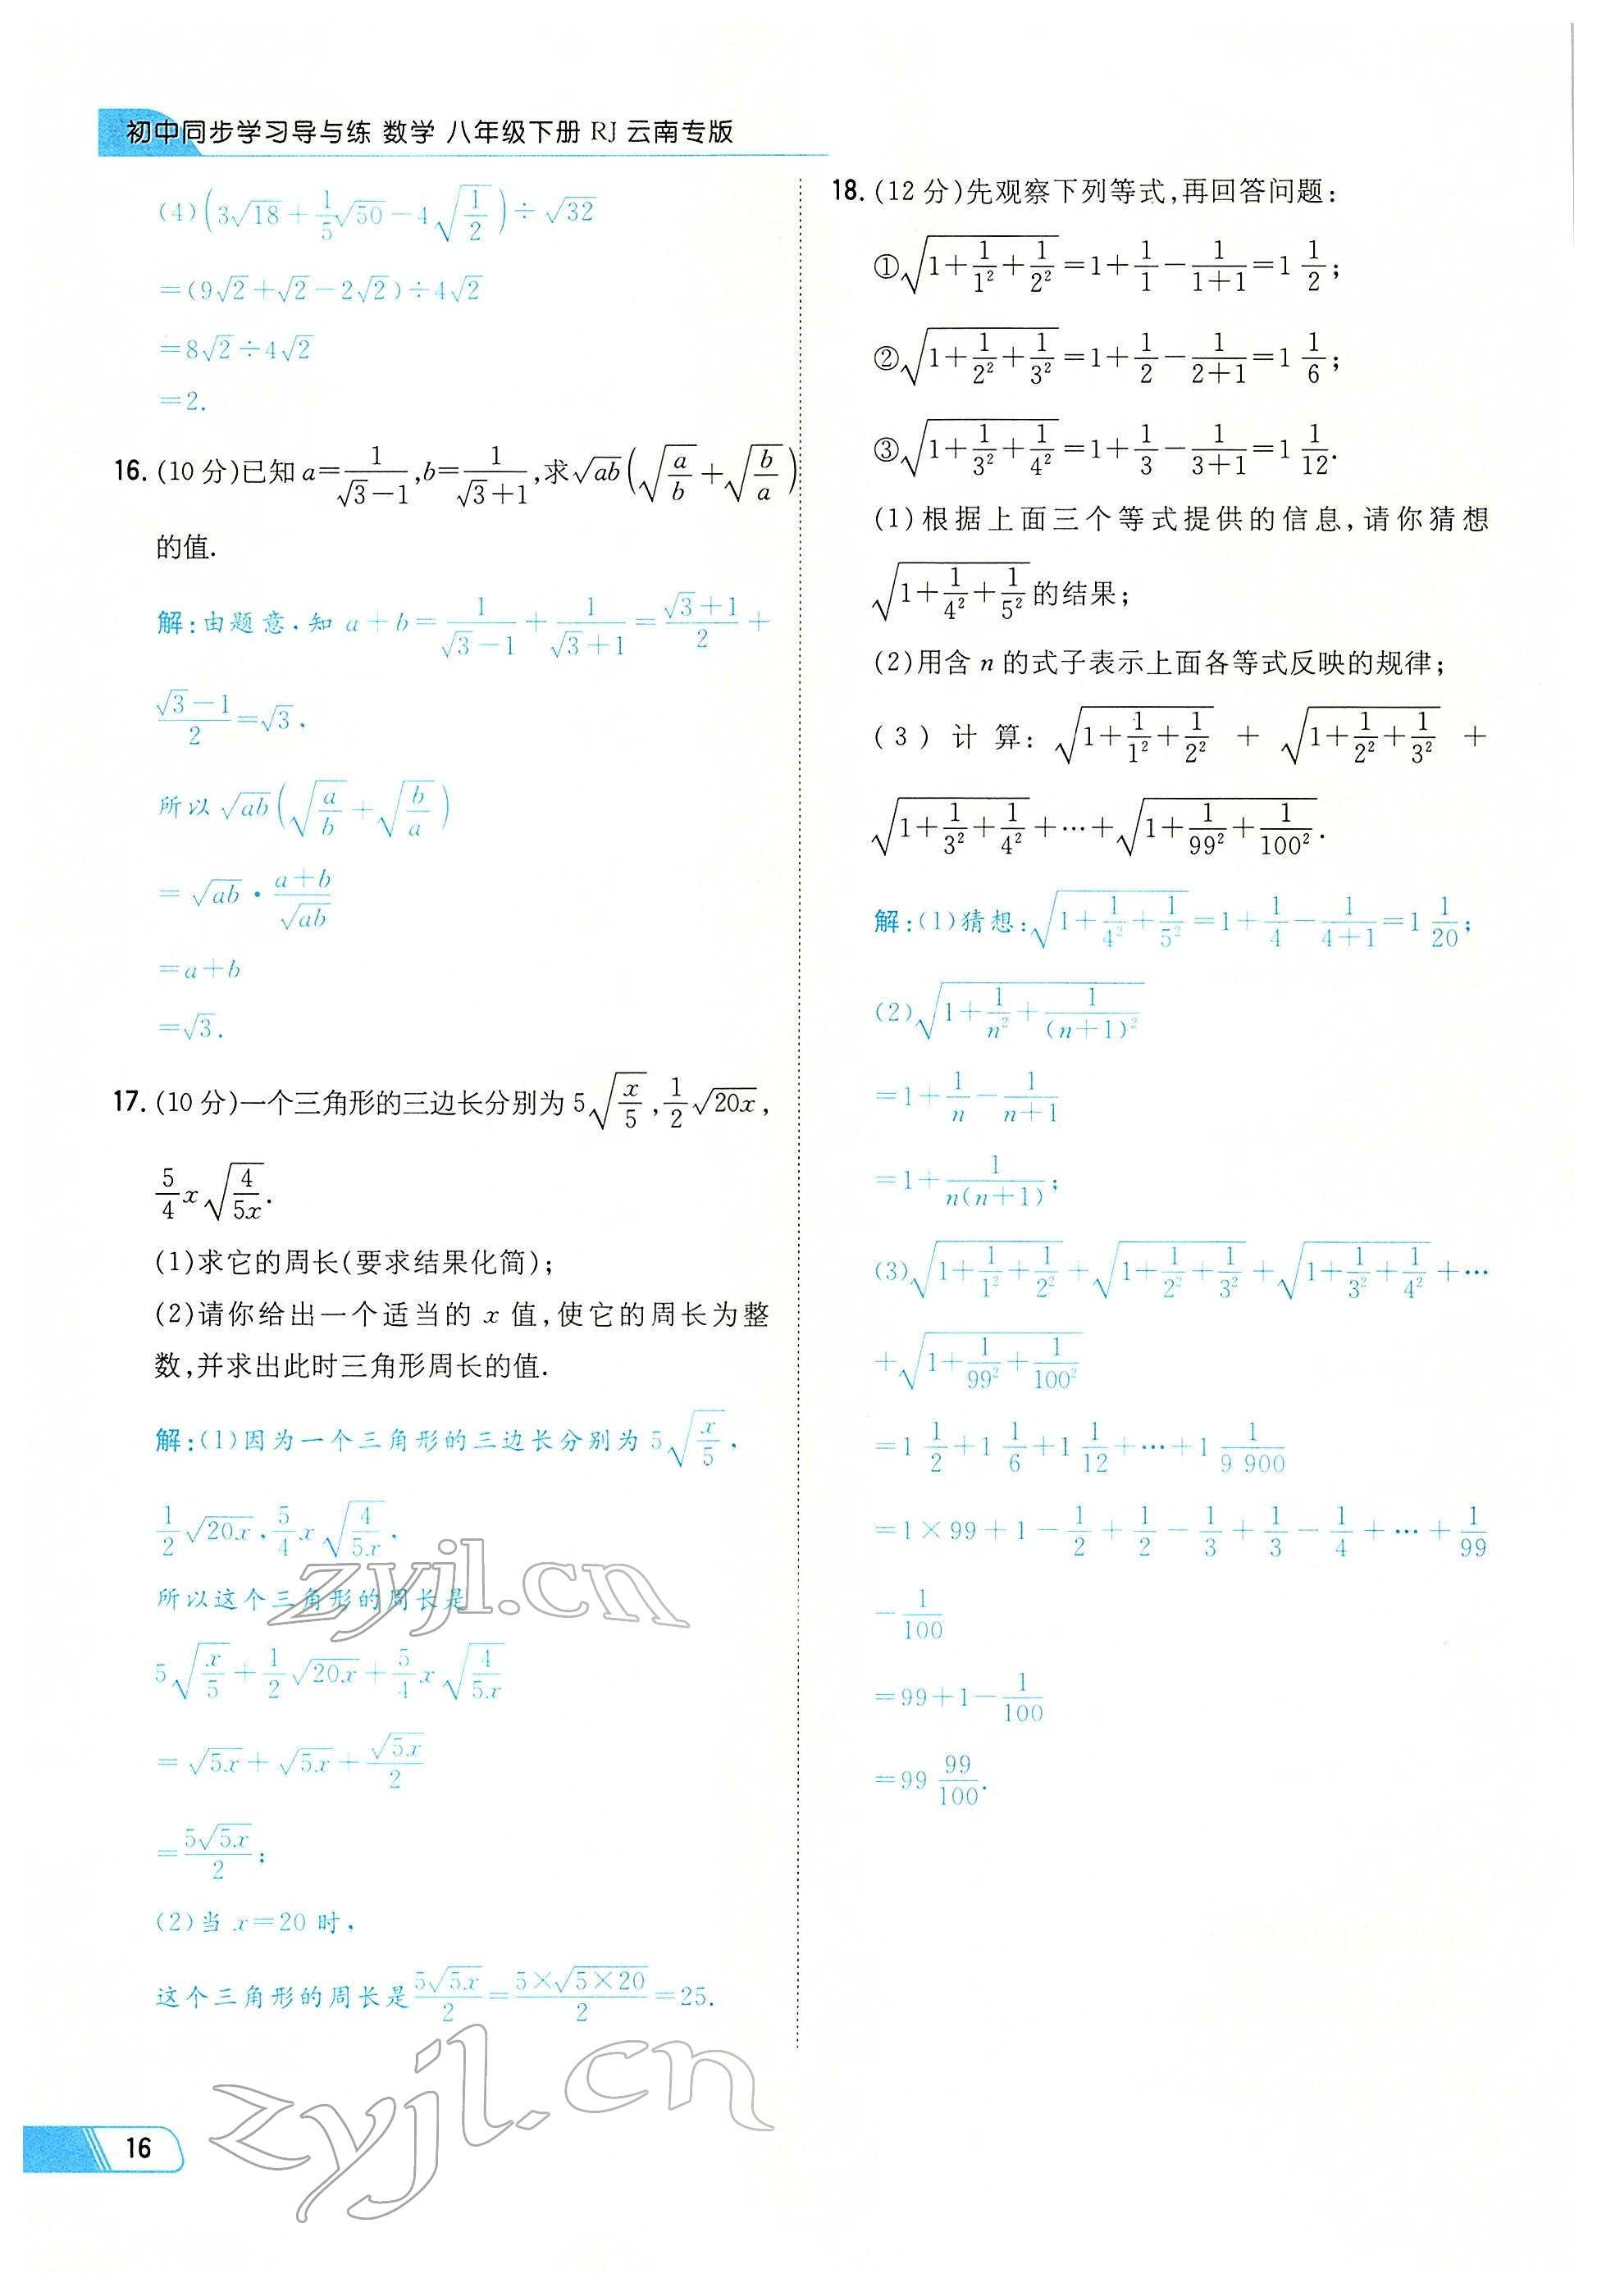 初中同步学习导与练 数学 八年级下册 RJ 云南专版
(4)(3√18+1/5√50−4√(1/2))÷√32
=(9√2+√2−2√2)÷4√2
=8√2÷4√2
=2.
16. (10 分)已知 a=1/(√3−1),b=1/(√3+1),求√ab(√(a/b)+√(b/a))
的值.
解:由题意,知 a+b=1/(√3−1)+1/(√3+1)=(√3+1)/2+
(√3−1)/2=√3.
所以√ab(√(a/b)+√(b/a))
=√ab·(a+b)/√ab
=a+b
=√3.
17. (10 分)一个三角形的三边长分别为 5√(x/5),1/2√20x,
5/4 x√(4/5x).
(1)求它的周长(要求结果化简);
(2)请你给出一个适当的 x 值,使它的周长为整
数,并求出此时三角形周长的值.
解:(1)因为一个三角形的三边长分别为 5√(x/5),
1/2√20x,5/4 x√(4/5x),
所以这个三角形的周长是
5√(x/5)+1/2√20x+5/4 x√(4/5x)
=√5x+√5x+√5x/2
=5√5x/2;
(2)当 x=20 时,
这个三角形的周长是5√5x/2=(5×√(5×20))/2=25.
18. (12 分)先观察下列等式,再回答问题:
①√(1+1/1²+1/2²)=1+1/1−1/(1+1)=1 1/2;
②√(1+1/2²+1/3²)=1+1/2−1/(2+1)=1 1/6;
③√(1+1/3²+1/4²)=1+1/3−1/(3+1)=1 1/12.
(1)根据上面三个等式提供的信息,请你猜想
√(1+1/4²+1/5²)的结果;
(2)用含 n 的式子表示上面各等式反映的规律;
(3)计算:√(1+1/1²+1/2²)+√(1+1/2²+1/3²)+
√(1+1/3²+1/4²)+…+√(1+1/99²+1/100²).
解:(1)猜想:√(1+1/4²+1/5²)=1+1/4−1/(4+1)=1 1/20;
(2)√(1+1/n²+1/(n+1)²)
=1+1/n−1/(n+1)
=1+1/(n(n+1));
(3)√(1+1/1²+1/2²)+√(1+1/2²+1/3²)+√(1+1/3²+1/4²)+…
+√(1+1/99²+1/100²)
=1 1/2+1 1/6+1 1/12+…+1 1/9 900
=1×99+1−1/2+1/2−1/3+1/3−1/4+…+1/99
−1/100
=99+1−1/100
=99 99/100.
zyjl.cn
zyjl.cn
16